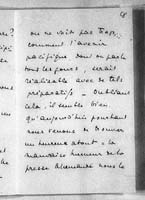 48
on ne voit pas trop
comment l'avenir
pacifique dont on parle
tous les jours, serait
réalisable avec de tels
préparatifs - Oubliant
cela, il semble bien
qu'aujourd'hui pourtant
nous venons de trouver
un heureux
mauvaise humeur de la
presse allemande nous la